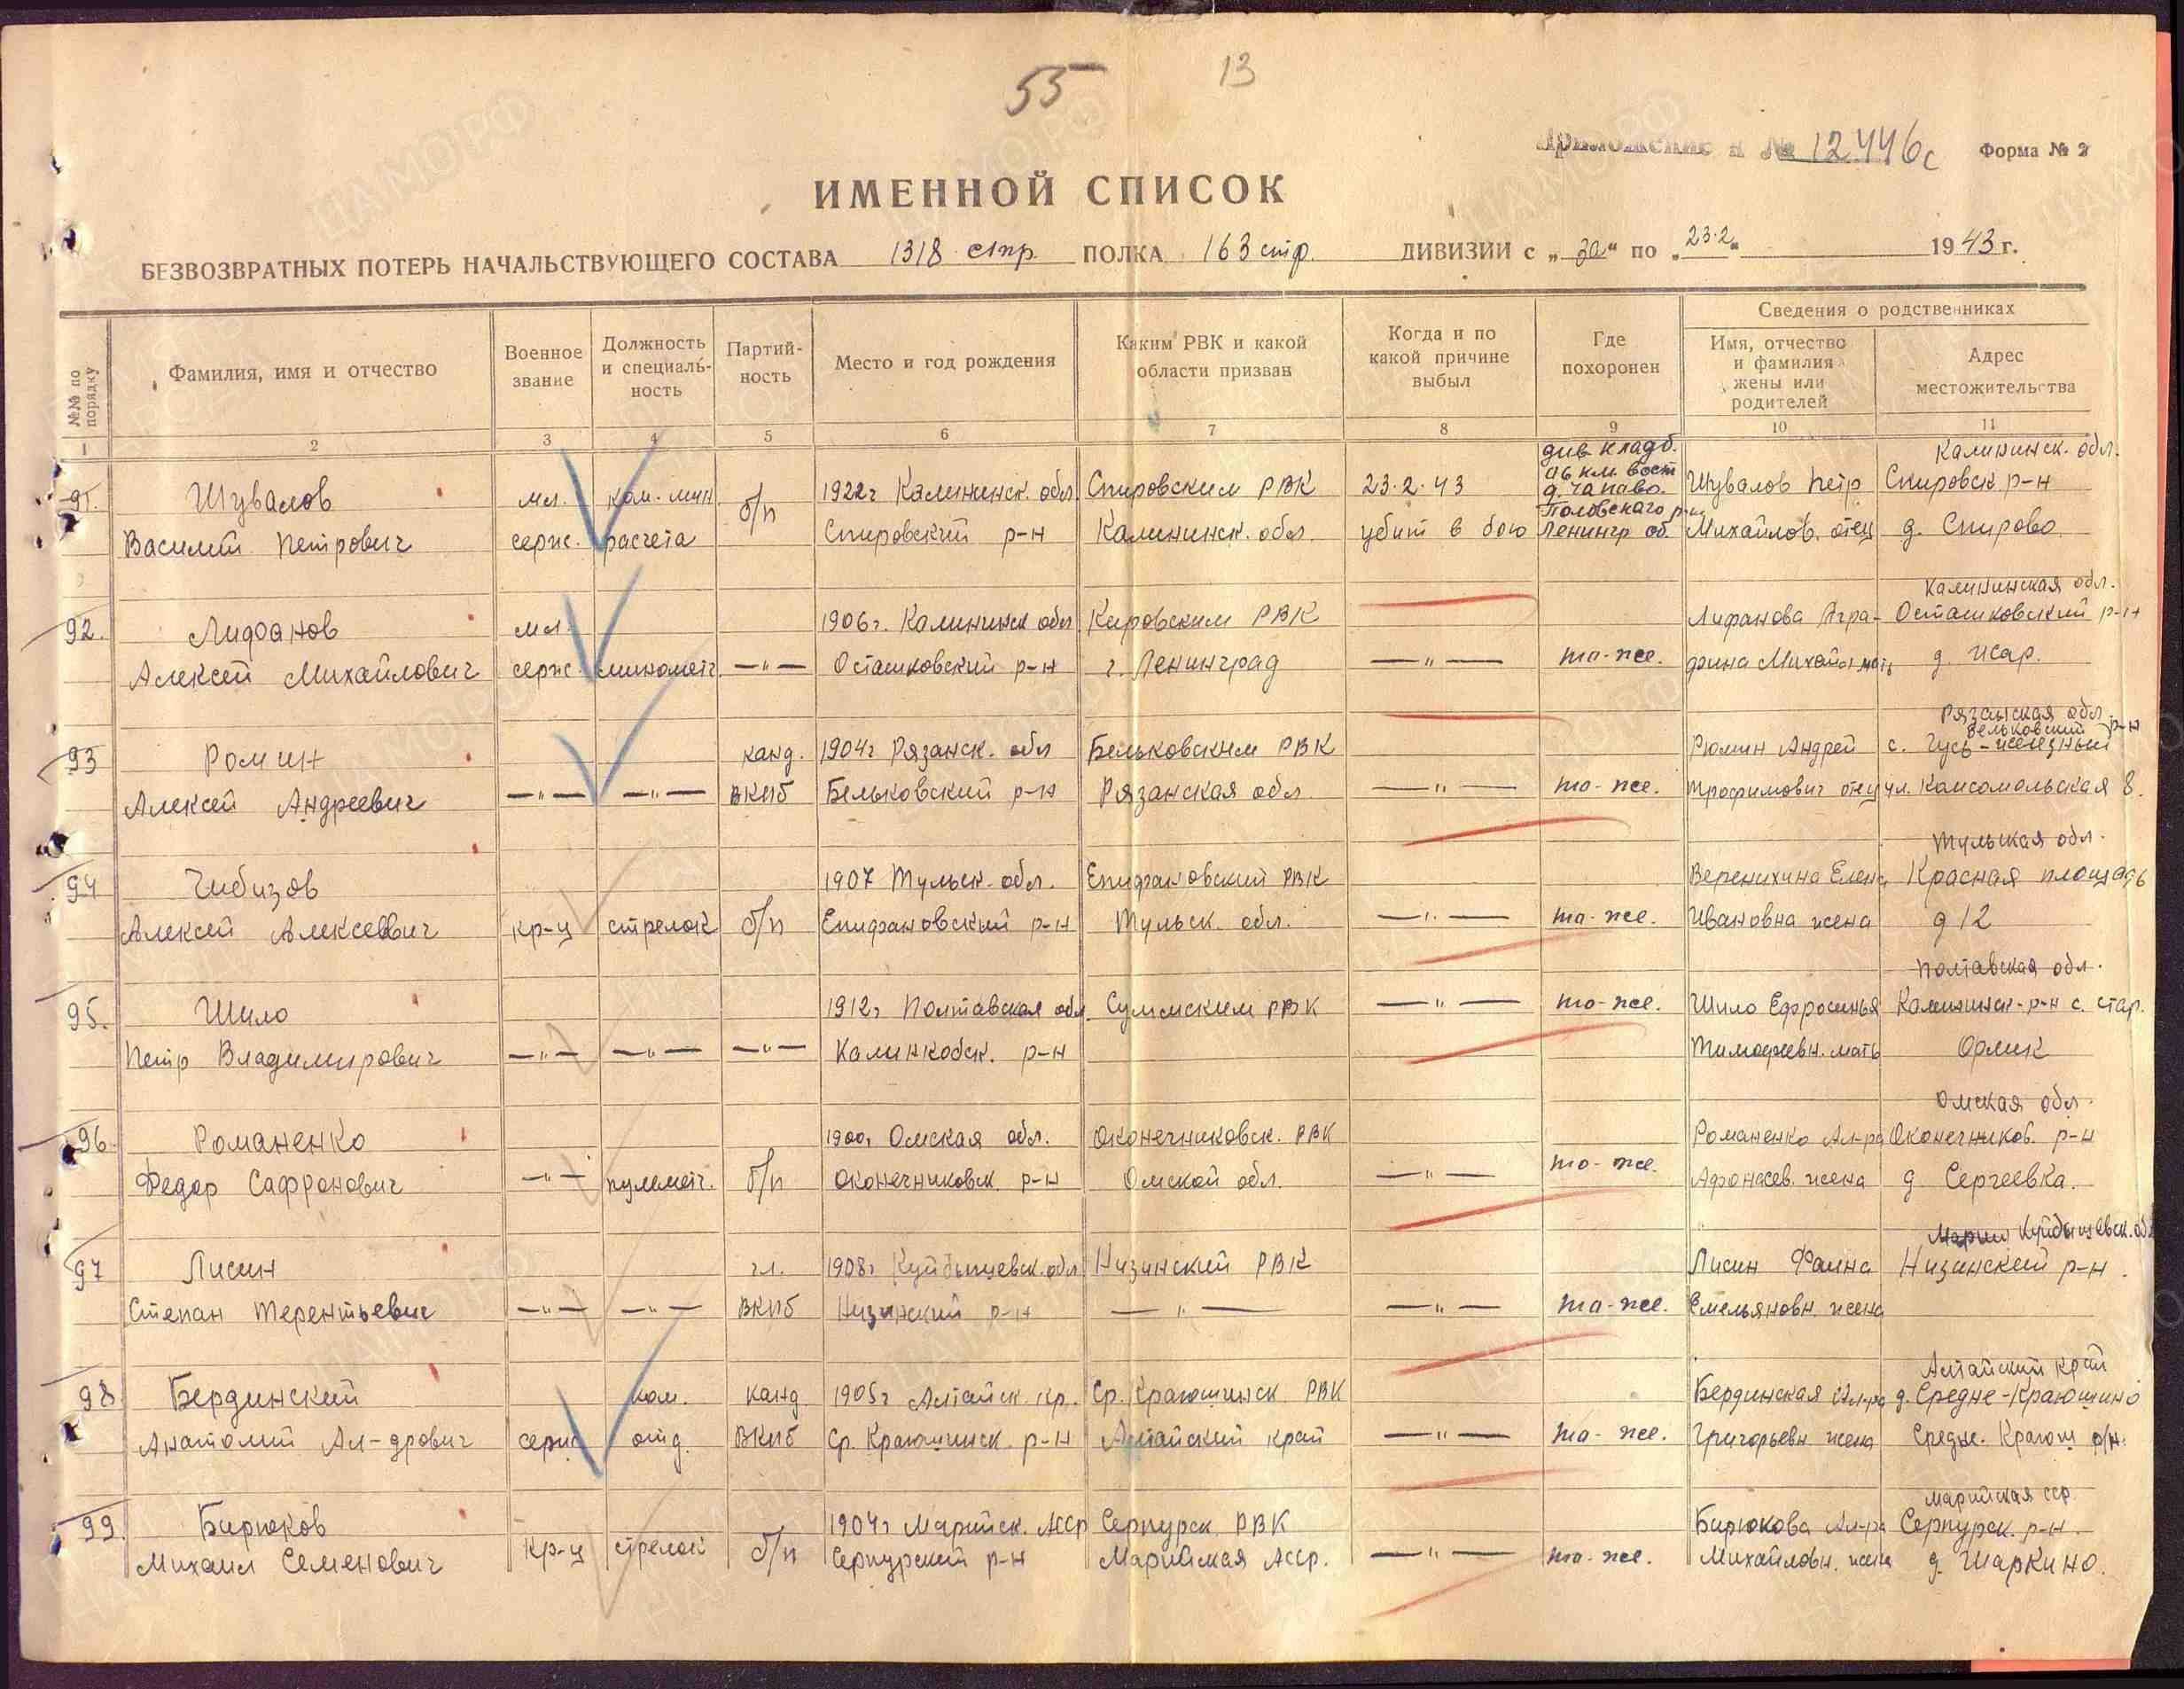 55 13
Приложение к № 12446с Форма № 2
ИМЕННОЙ СПИСОК
БЕЗВОЗВРАТНЫХ ПОТЕРЬ НАЧАЛЬСТВУЮЩЕГО СОСТАВА 1318 стр. ПОЛКА 163 стр. ДИВИЗИИ с „за“ по „23.2“ 1943 г.
№№ по порядку
Фамилия, имя и отчество
Военное звание
Должность и специальность
Партийность
Место и год рождения
Каким РВК и какой области призван
Когда и по какой причине выбыл
Где похоронен
Сведения о родственниках
Имя, отчество и фамилия жены или родителей
Адрес местожительства
1 2 3 4 5 6 7 8 9 10 11
див. кладб. Калининск. обл.
91. Шувалов мл. ком. мин б/п 1922г Калининск. обл Спировским РВК 23.2.43 д. Чапаево. Шувалов Петр Спировск р-н
Василий Петрович сержс. расчета Спировский р-н Калининск. обл. убит в бою Ленингр об. Михайлов. отец д. Спирово
Калининская обл.
92. Лифанов мл. 1906г. Калининск обл Кировским РВК Лифанова Агра- Осташковский р-н
Алексей Михайлович серж. миномет. —"— Осташковский р-н г. Ленинград —"— то-же. фина Михайл мать д.
Рязанская обл
Бельковский р-н
93 Ромин канд. 1904г Рязанск. обл Бельковским РВК Рюмин Андрей с. Гусь-железный
Алексей Андреевич —"— —"— ВКПб Бельковский р-н Рязанская обл —"— то-же. Трофимович отец ул. Комсомольская 8.
Тульская обл.
94 Чибизов 1907 Тульск. обл. Епифановский РВК Веренихина Елена Красная площадь
Алексей Алексеевич кр-ц стрелок б/п Епифановский р-н Тульск. обл. —"— то-же. Ивановна жена д 12
Полтавская обл.
95. Шило 1912г Полтавская обл. Сумским РВК —"— то-же. Шило Ефросинья Калининск-р-н с. Стар.
Петр Владимирович —"— —"— —"— р-н Тимофеевн. мать Орлик
Омская обл.
96. Романенко 1900г Омская обл. Оконечниковск. РВК Романенко Ал-ра Оконечников. р-н
Федор Сафронович —"— пулемет. б/п Оконечниковск. р-н Омской обл. —"— то-же. Афонасев. жена д Сергеевка.
Куйбышевск. обл
97 Лисин чл. 1908г Куйбышевск. обл Низинский РВК Лисин Фаина Низинский р-н.
Степан Терентьевич —"— —"— ВКПб Низинский р-н —"— —"— то-же. Емельяновн. жена
Алтайский край
98. Бердинский ком. канд 1905г Алтайск. кр. Ср. Краюшинск РВК Бердинская Ал-ра д. Средне-Краюшино
Анатолий Ал-дрович серж отд. ВКПб Ср. Краюшинск. р-н Алтайский край —"— то-же. Григорьевн жена Средне. Краюш р/н.
Марийская сср
99. Бирюков 1904г Марийск. Асср Сернурск. РВК Бирюкова Ал-ра Сернурск. р-н.
Михаил Семенович кр-ц стрелок б/п Сернурский р-н Марийская Асср. —"— то-же. Михайловн. жена д. Шаркино.